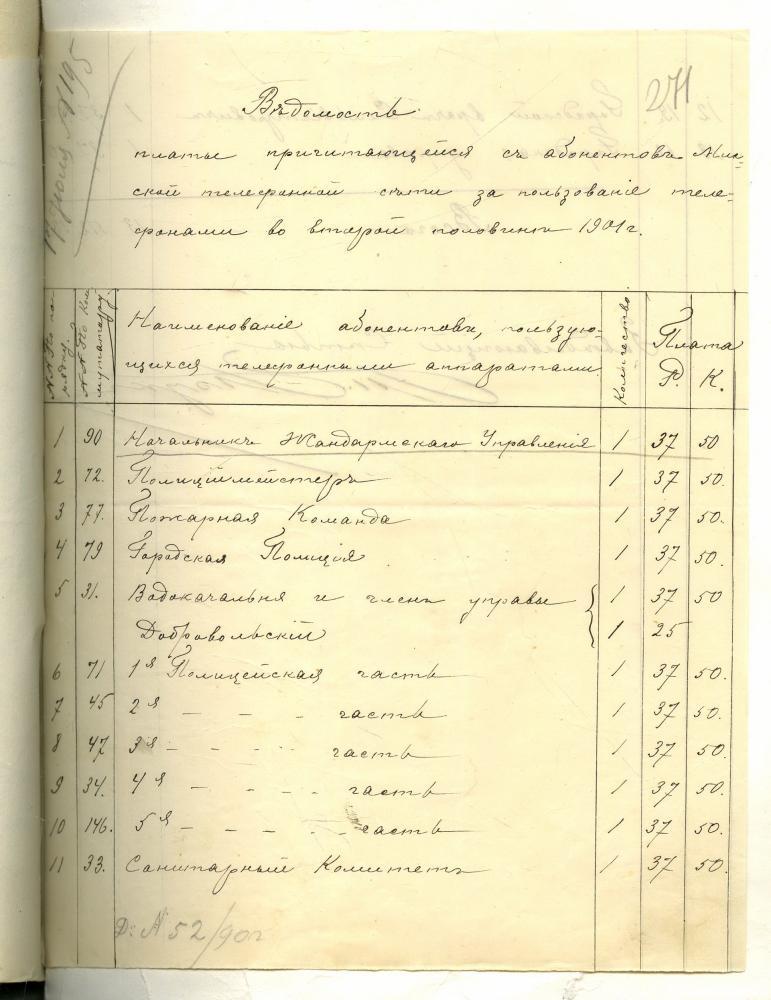 17 Июля № 195
271
Вѣдомость
платы причитающейся съ абонентовъ Мин=
ской телефонной сѣти за пользованіе теле=
фонами во второй половинѣ 1901 г.
№№ По по-
рядку.
№№ По Ком-
мутатору.
Наименованіе абонентовъ, пользую-
щихся телефонными аппаратами.
Количество.
Плата
Р. К.
1 90 Начальникъ Жандармскаго Управленія 1 37 50
2 72. Полиціймейстеръ 1 37 50.
3 77. Пожарная Команда 1 37 50.
4 79 Городская Полиція 1 37 50.
5 31. Водокачальня и членъ управы 1 37 50
Добровольскій 1 25
6 71 1я Полицейская часть 1 37 50.
7 45 2я - - - часть 1 37 50.
8 47 3я - - - часть 1 37 50.
9 34. 4я - - - - часть 1 37 50.
10 146. 5я - - - - часть 1 37 50.
11 33. Санитарный Комитетъ 1 37 50.
Д: № 52/901